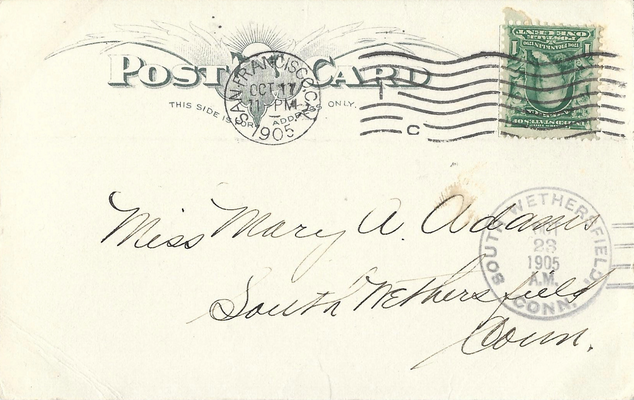 POST CARD
THIS SIDE IS FOR ADDRESS ONLY.
SAN FRANCISCO, CAL.
OCT 17
11 PM
1905
C
ONE CENT
POSTAGE
Miss Mary A. Adams
South Wethersfield
Conn.
SOUTH WETHERSFIELD
23
1905
A.M.
CONN.